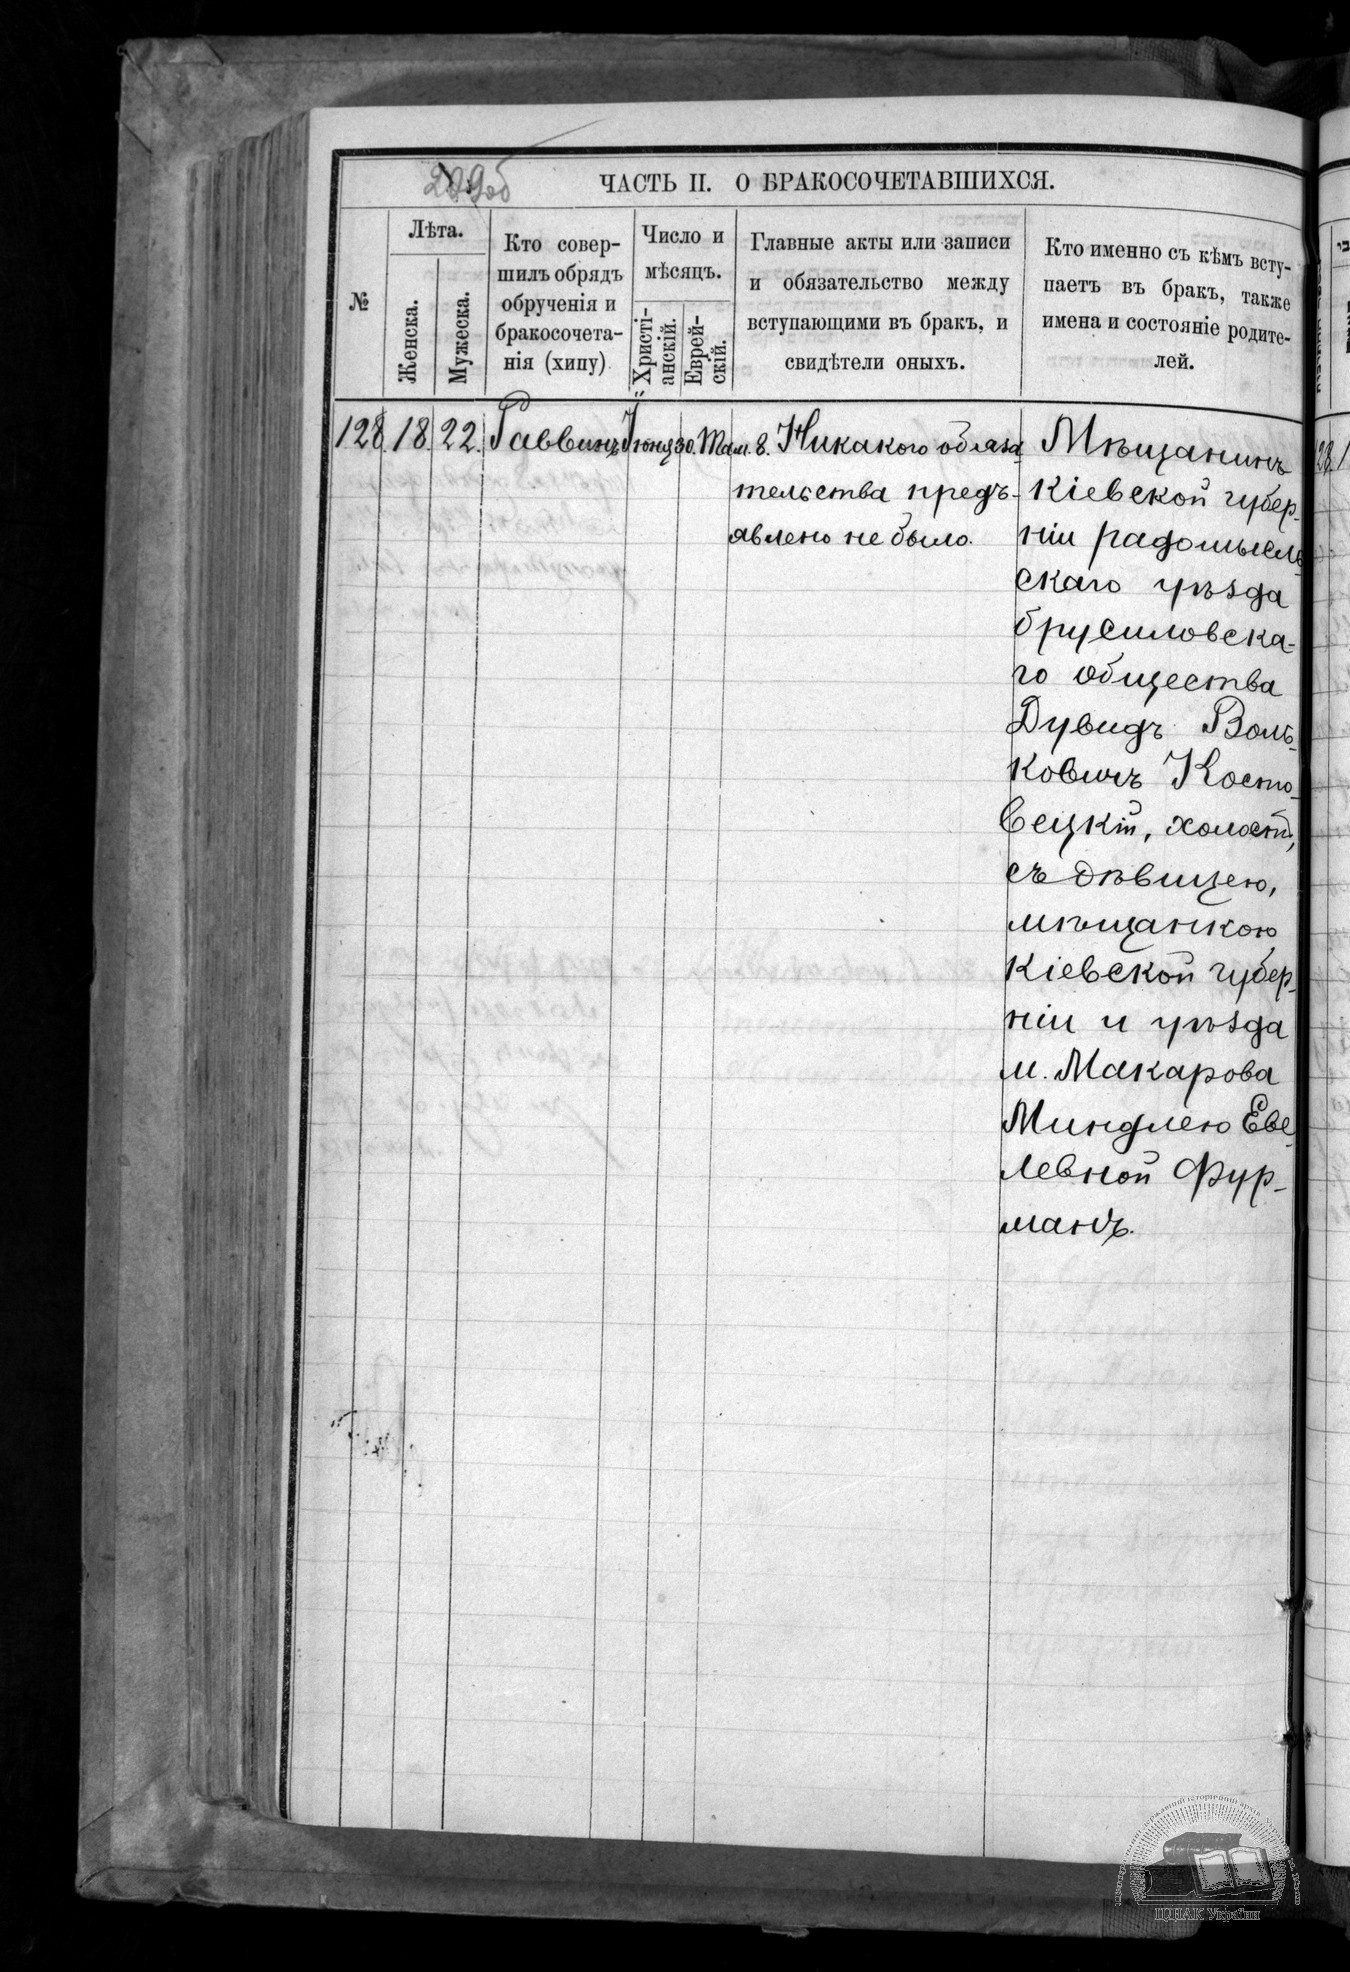 299об
ЧАСТЬ II. О БРАКОСОЧЕТАВШИХСЯ.
№
Лѣта.
Женска.
Мужеска.
Кто совер-
шилъ обрядъ
обрученія и
бракосочета-
нія (хипу)
Число и
мѣсяцъ.
Христі-
анскій.
Еврей-
скій.
Главные акты или записи
и обязательство между
вступающими въ бракъ, и
свидѣтели оныхъ.
Кто именно съ кѣмъ всту-
паетъ въ бракъ, также
имена и состояніе родите-
лей.
128. 18. 22. Раввинъ Іюнь 30. Там. 8. Никакого обяза
тельства предъ-
явлено не было.
Мѣщанинъ
Кіевской губер-
ніи радомысль
скаго уѣзда
брусиловска-
го общества
Дувидъ Воль-
ковичъ Косто-
вецкій, холостъ,
съ дѣвицею,
мѣщанкою
Кіевской губер-
ніи и уѣзда
м. Макарова
Миндлею Еве-
левной Фур-
манъ.
ЦДІАК України